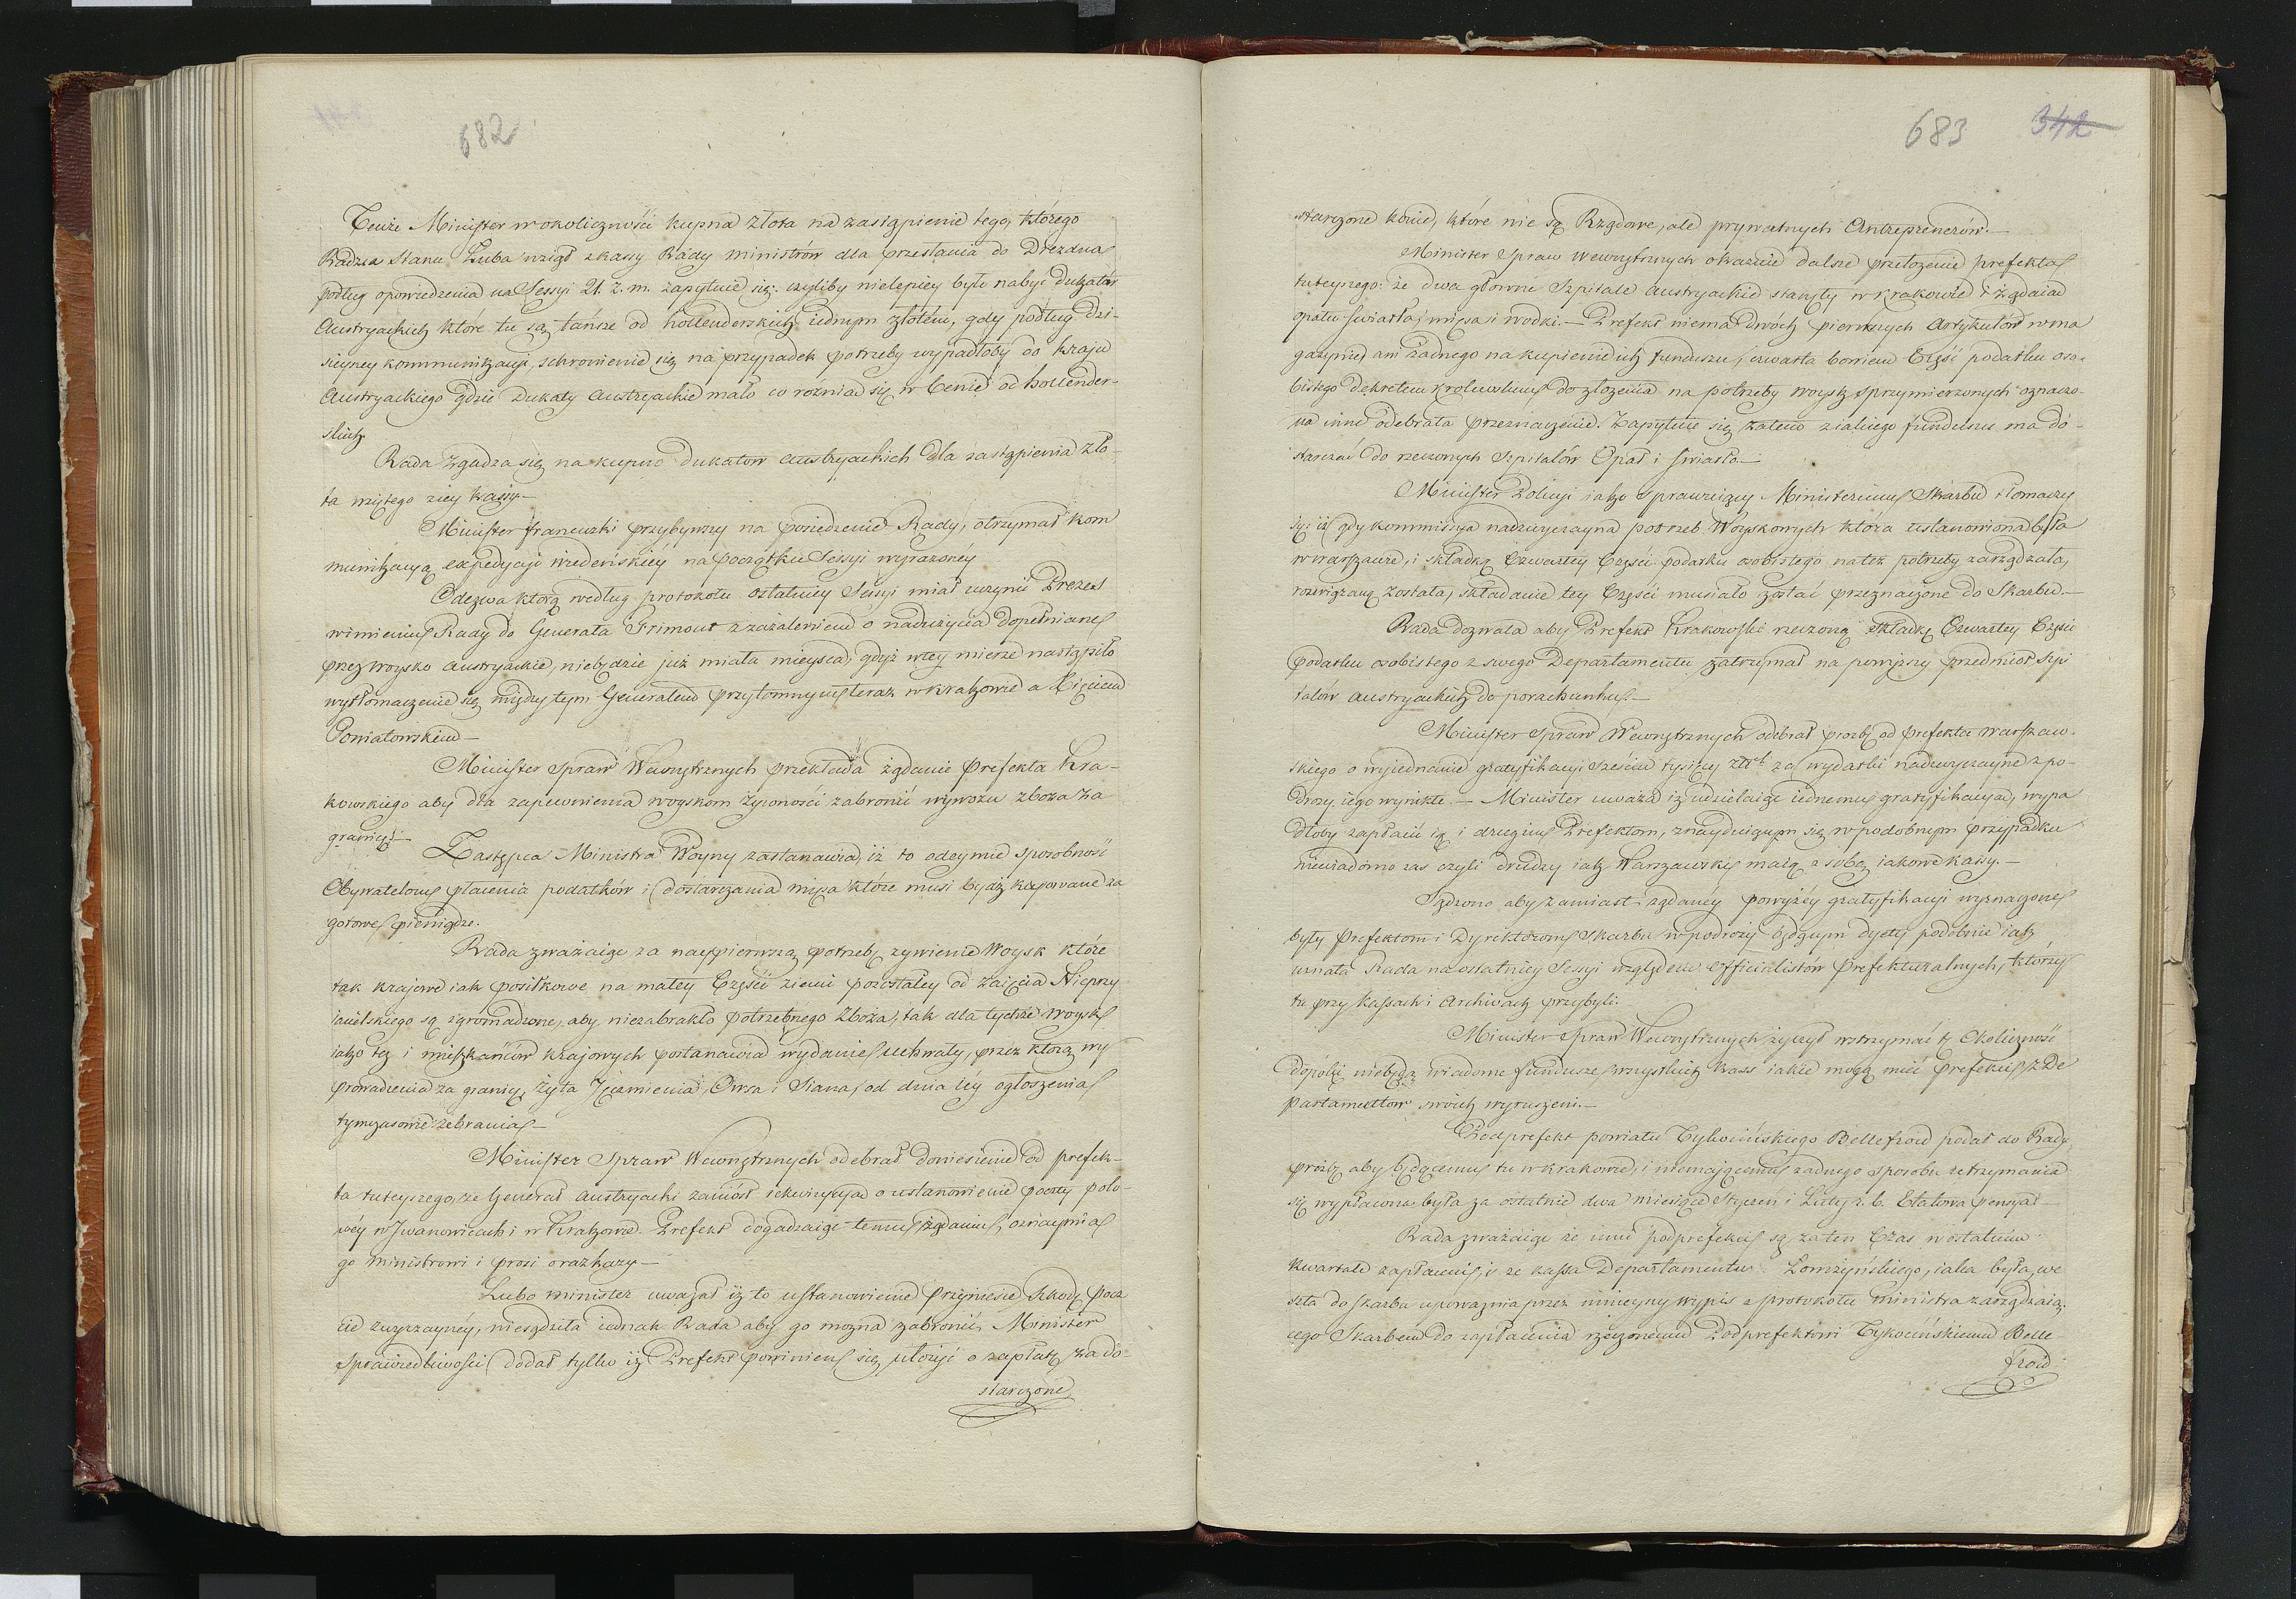 682
Tenże Minister w okoliczności kupna złota na zastąpienie tego, którego
Radzca Stanu Łuba wziął z kassy Rady ministrów dla przesłania do Drezna
podług opowiedzenia na Sessyi 21. z. m. zapytuie się: czyliby nielepiey było nabyć dukatów
Austryackich które tu są tańsze od hollenderskich iednym złotém, gdy podług dzi-
sieyney kommunikacyi, schronienie się na przypadek potrzeby wypadłoby do kraju
Austryackiego gdzie Dukaty Austryackie mało co roznią się w Cenie od hollender-
skich
Rada zgadza się na kupno dukatow austryackich dla zastąpienia zło-
ta wziętego z iey kassy.—
Minister francuzki przybywszy na posiedzenie Rady, otrzymał kom
munikacyą expedycyi wiedeńskiéy na początku Sessyi wyrażonéy
Odezwa którą według protokołu ostatniey Sessyi miał uczynić Prezes
w imieniu Rady do Generała Frimont z zażaleniem o nadużycia dopełniane
przez woysko austryackie, niebędzie już miała mieysca, gdyż w tey mierze nastąpiło
wytłomaczenie się między tym Generałem przytomnym teraz w Krakowie a Xięciem
Poniatowskim —
Minister Spraw Wewnętrznych przekłada żądanie Prefekta Kra-
kowskiego aby dla zapewnienia woyskom żywności zabronić wywozu zboża za
granicę.—
Zastępca Ministra Woyny zastanawia, iż to odeymie sposobność
Obywatelom płacenia podatków i dostarczania mięsa które musi bydź kupowane za
gotowe pieniądze.
Rada zważaiąc za naypierwszą potrzebę żywienie Woysk które
tak krajowe iak posiłkowe na małey Części ziemi pozostałey od zaięcia Nieprzy
iacielskiego są zgromadzone, aby niezabrakło potrzebnego zboża, tak dla tychże woysk
iako też i mieszkańców krajowych postanawia wydanie uchwały, przez którą wy
prowadzenia za granicę, żyta Jęczmienia, Owsa i Siana, od dnia iéy ogłoszenia
tymczasowie zebrania —
Minister Spraw Wewnętrznych odebrał doniesienie od prefek-
ta tuteyszego, że Generał austryacki zaniósł rekwizycyą o ustanowienie poczty polo-
wéy w Iwanowicach i w Krakowie. Prefekt dogadzaiąc temu żądaniu, oznaymia
go ministrowi i prosi o rozkazy —
Lubo minister uważał iż to ustanowienie przyniesie szkodę pocz
cie zwyczayney, niesądziła iednak Rada aby go można zabronić, Minister
Sprawiedliwości dodał tylko iż Prefekt powinien się ułożyć o zapłatę za do-
starczone
683 342
starczone konie, które nie są Rządowe, ale prywatnych Antreprenerów.—
Minister Spraw wewnętrznych okazuie dalsze przełożenie prefekta
tuteyszego: że dwa główne Szpitale austryackie stanęły w Krakowie i żądaią
opału światła, mięsa i wodki.— Prefekt niema dwóch pierwszych Artykułów w ma
gazynie, ani żadnego na kupienie ich funduszu, czwarta bowiem Część podatku oso-
bistego dekretem Krolewskim do złożenia na potrzeby woysk sprzymierzonych oznaczo-
na inne odebrała przeznaczenie. Zapytuie się zatem z iakiego funduszu ma do-
starczać do rzeczonych Szpitalów Opał i światło.—
Minister Policyi iako sprawuiący Ministerium Skarbu tłomaczy
się: iż gdy kommissya nadzwyczayna potrzeb Woyskowych która ustanowiona była
w warszawie, i składką Czwartey Części podatku osobistego na też potrzeby zarządzała,
rozwiązaną została, składanie tey Części musiało zostać przeznaczone do Skarbu.—
Rada dozwala aby Prefekt Krakowski rzeczoną składkę Czwartey Części
podatku osobistego z swego Departamentu zatrzymał na powyższy przedmiot szpi
talów austryackich do porachunku.—
Minister Spraw Wewnętrznych odebrał prozbę od prefekta warszaw-
skiego o wyiednanie gratyfikacyi sześciu tysięcy złt. za wydatki nadzwyczayne z po-
droży iego wynikłe.— Minister uważa iż udzielaiąc iednemu gratyfikacyą, wypa
dłoby zapłacić ią i drugim Prefektom, znayduiącym się w podobnym przypadku
niewiadomo zas czyli drudzy iak Warszawski maią z sobą iakowe kassy.—
Sądzono aby zamiast żądanéy powyżéy gratyfikacyi wyznaczone
były Prefektom i Dyrektorom skarbu w podroży będącym dyety podobnie iak
uznała Rada na ostatniey Sessyi względem officialistów Prefekturalnych, którzy
tu przy kassach i Archiwach przybyli.
Minister spraw Wewnętrznych życzył wstrzymać tę Okoliczność
dopóki niebędą wiadome fundusze wszystkich kass iakie mogą mieć prefekci z De
partamentów swoich wyruszeni.—
Podprefekt powiatu Tykocińskiego Bellefroid podał do Rady
prośbę, aby będącemu tu w Krakowie, i niemającemu żadnego sposobu utrzymania
się wypłacona była za ostatnie dwa miesiące Styczeń i Luty r. b. Etatowa pensya
Rada zważaiąc że inni podprefekci są za ten Czas w ostatnim
kwartale zapłaceni, i że kassa Departamentu Łomżyńskiego, iaka była, we
szła do skarbu upoważnia przez ninieyszy wypis z protokołu ministra zarządzaią-
cego Skarbem do zapłacenia rzeczonemu Podprefektowi Tykocińskiemu Belle
froid